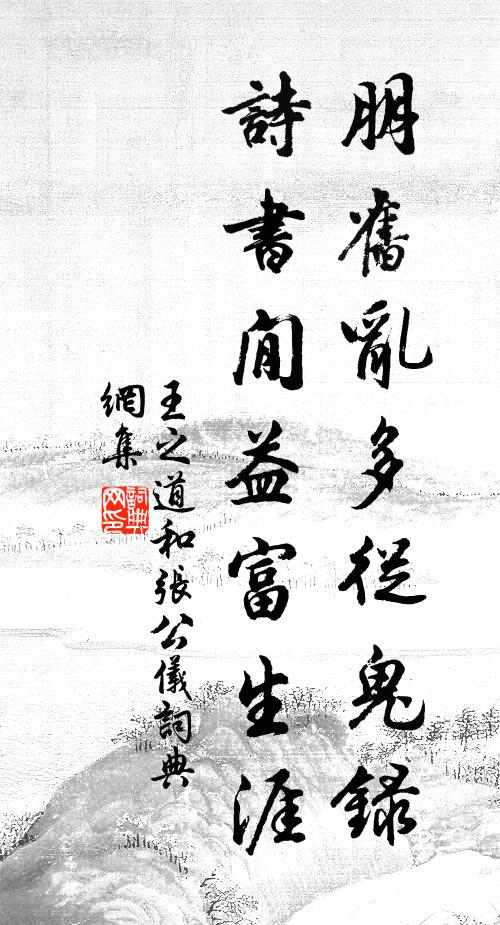 朋舊亂多從鬼錄
詩書閒益富生涯
王之道和張公儀詞典
網集
詞典
网印